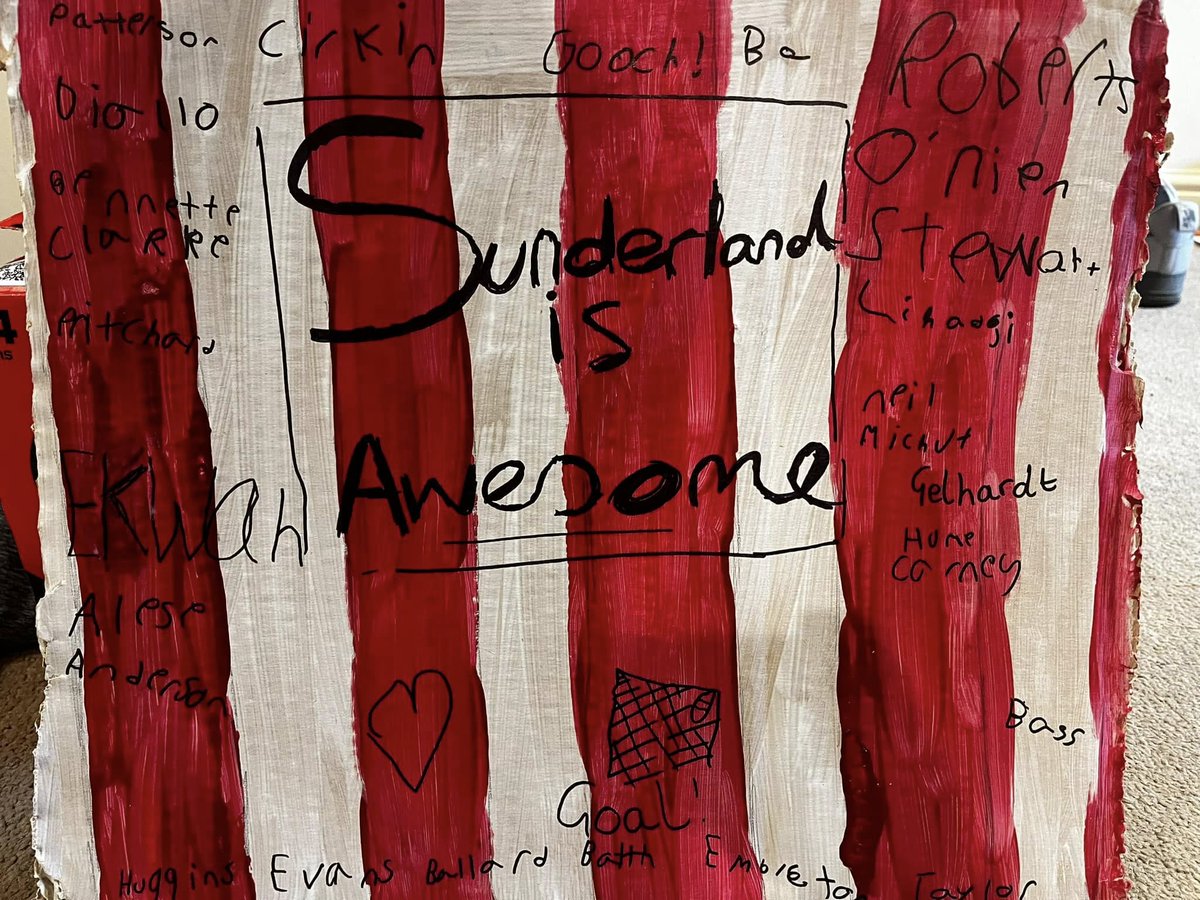 Patterson Cirkin Gooch! Ba Roberts
Diallo
Bennette
Clarke
Pritchard
Ekwah
Alese
Anderson
Sunderland
is
Awesome
O'nien
Stewart
Lihadji
neil
Michut
Gelhardt
Hume
Carney
Bass
Goal!
Huggins Evans Ballard Batth Embleton Taylor